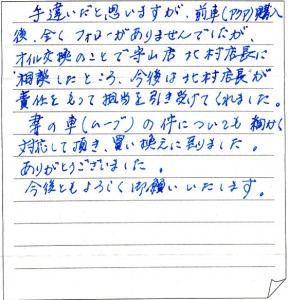 手違いだと思いますが、前車(アクア)購入
後、全くフォローがありませんでしたが、
オイル交換のことで守山店 北村店長に
相談したところ、今後は北村店長が
責任をもって担当を引き受けてくれました。
妻の車(ムーブ)の件についても細かく
対応して頂き、買い換えに至りました。
ありがとうございました。
今後ともよろしく御願いいたします。